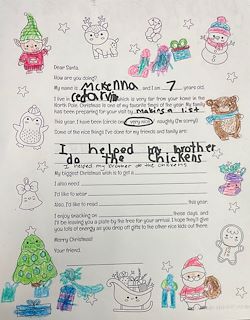 Dear Santa,
How are you doing?
My name is McKenna and I am 7 years old.
I live in which is very far from your home in the
North Pole. Christmas is one of my favorite times of the year. My family
has been preparing for your visit by making a list
This year, I have been (circle one) very nice / naughty (I'm sorry!)
Some of the nice things I've done for my friends and family are:
I helped my brother
do the chickens
I helped my brother do the chickens
My biggest Christmas wish is to get a
I also need
I'd like to wear
Also, I'd like to read
I enjoy snacking on these days, and
I'll be leaving you a plate by the tree for your arrival. I hope they'll give
you lots of energy as you drop off gifts to the other nice kids out there.
Merry Christmas!
Your friend,